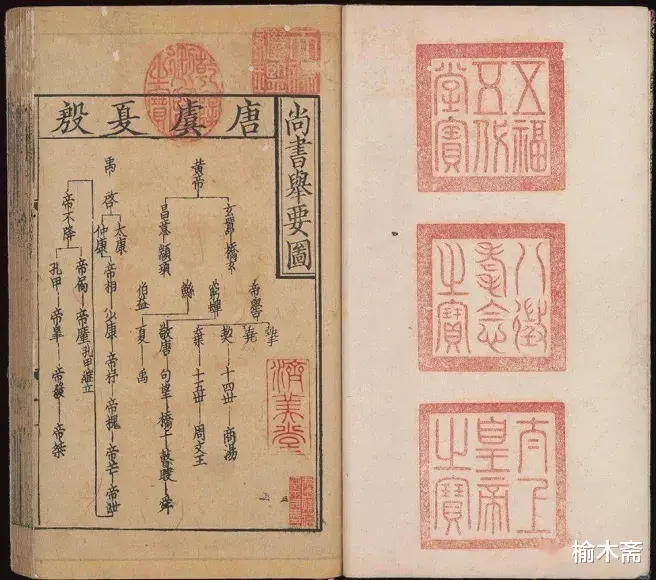 五福
五代
堂寶
八徵
耄念
之寶
太上
皇帝
之寶
尚書舉要圖
唐虞夏殷
乾隆御覽之寶
黃帝
玄囂
昌意 顓頊
帝嚳
摯
堯
契 十四世 商湯
十五世 周文王
窮蟬
鯀
句望
瞽瞍 舜
伯益
夏 禹
禹 啓
太康
仲康 帝相 少康 帝杼 帝槐 帝芒 帝泄
帝不降
帝扃 帝廑 孔甲繼立
孔甲 帝皋 帝發 帝桀
濟美堂
榆木斋